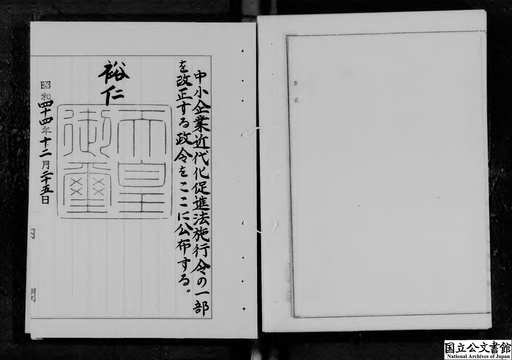 中小企業近代化促進法施行令の一部
を改正する政令をここに公布する。
裕仁
天皇
御璽
昭和四十四年十二月二十五日
国立公文書館
National Archives of Japan